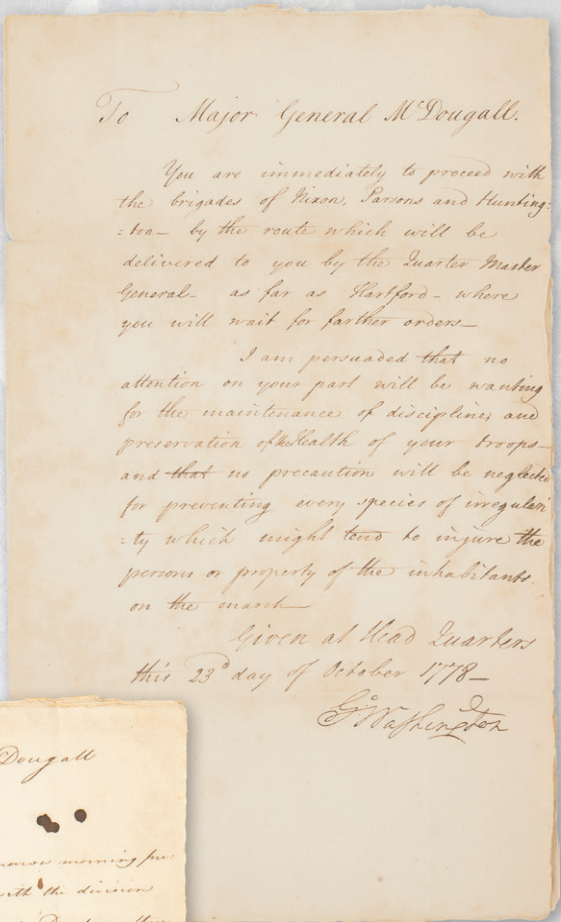 To Major General McDougall.
You are immediately to proceed with
the brigades of Nixon, Parsons and Hunting=
=ton— by the route which will be
delivered to you by the Quarter Master
General— as far as Hartford— where
you will wait for farther orders—
I am persuaded that no
attention on your part will be wanting
for the maintenance of discipline, and
preservation of the Health of your troops—
and that no precaution will be neglected
for preventing every species of irregulari
=ty which might tend to injure the
persons or property of the inhabitants
on the march—
Given at Head Quarters
this 23d day of October 1778—
Go Washington
Dougall
morning
with the division